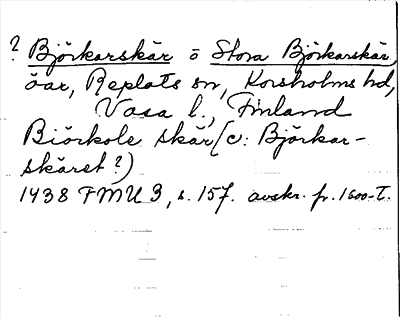 ? Björkarskär o Stora Björkarskär,
öar, Replots sn, Korsholms hd,
Vasa l., Finland
Biörkole skär (c: Björkar-
skäret?)
1438 FMU 3, s. 157. avskr. fr. 1600-t.